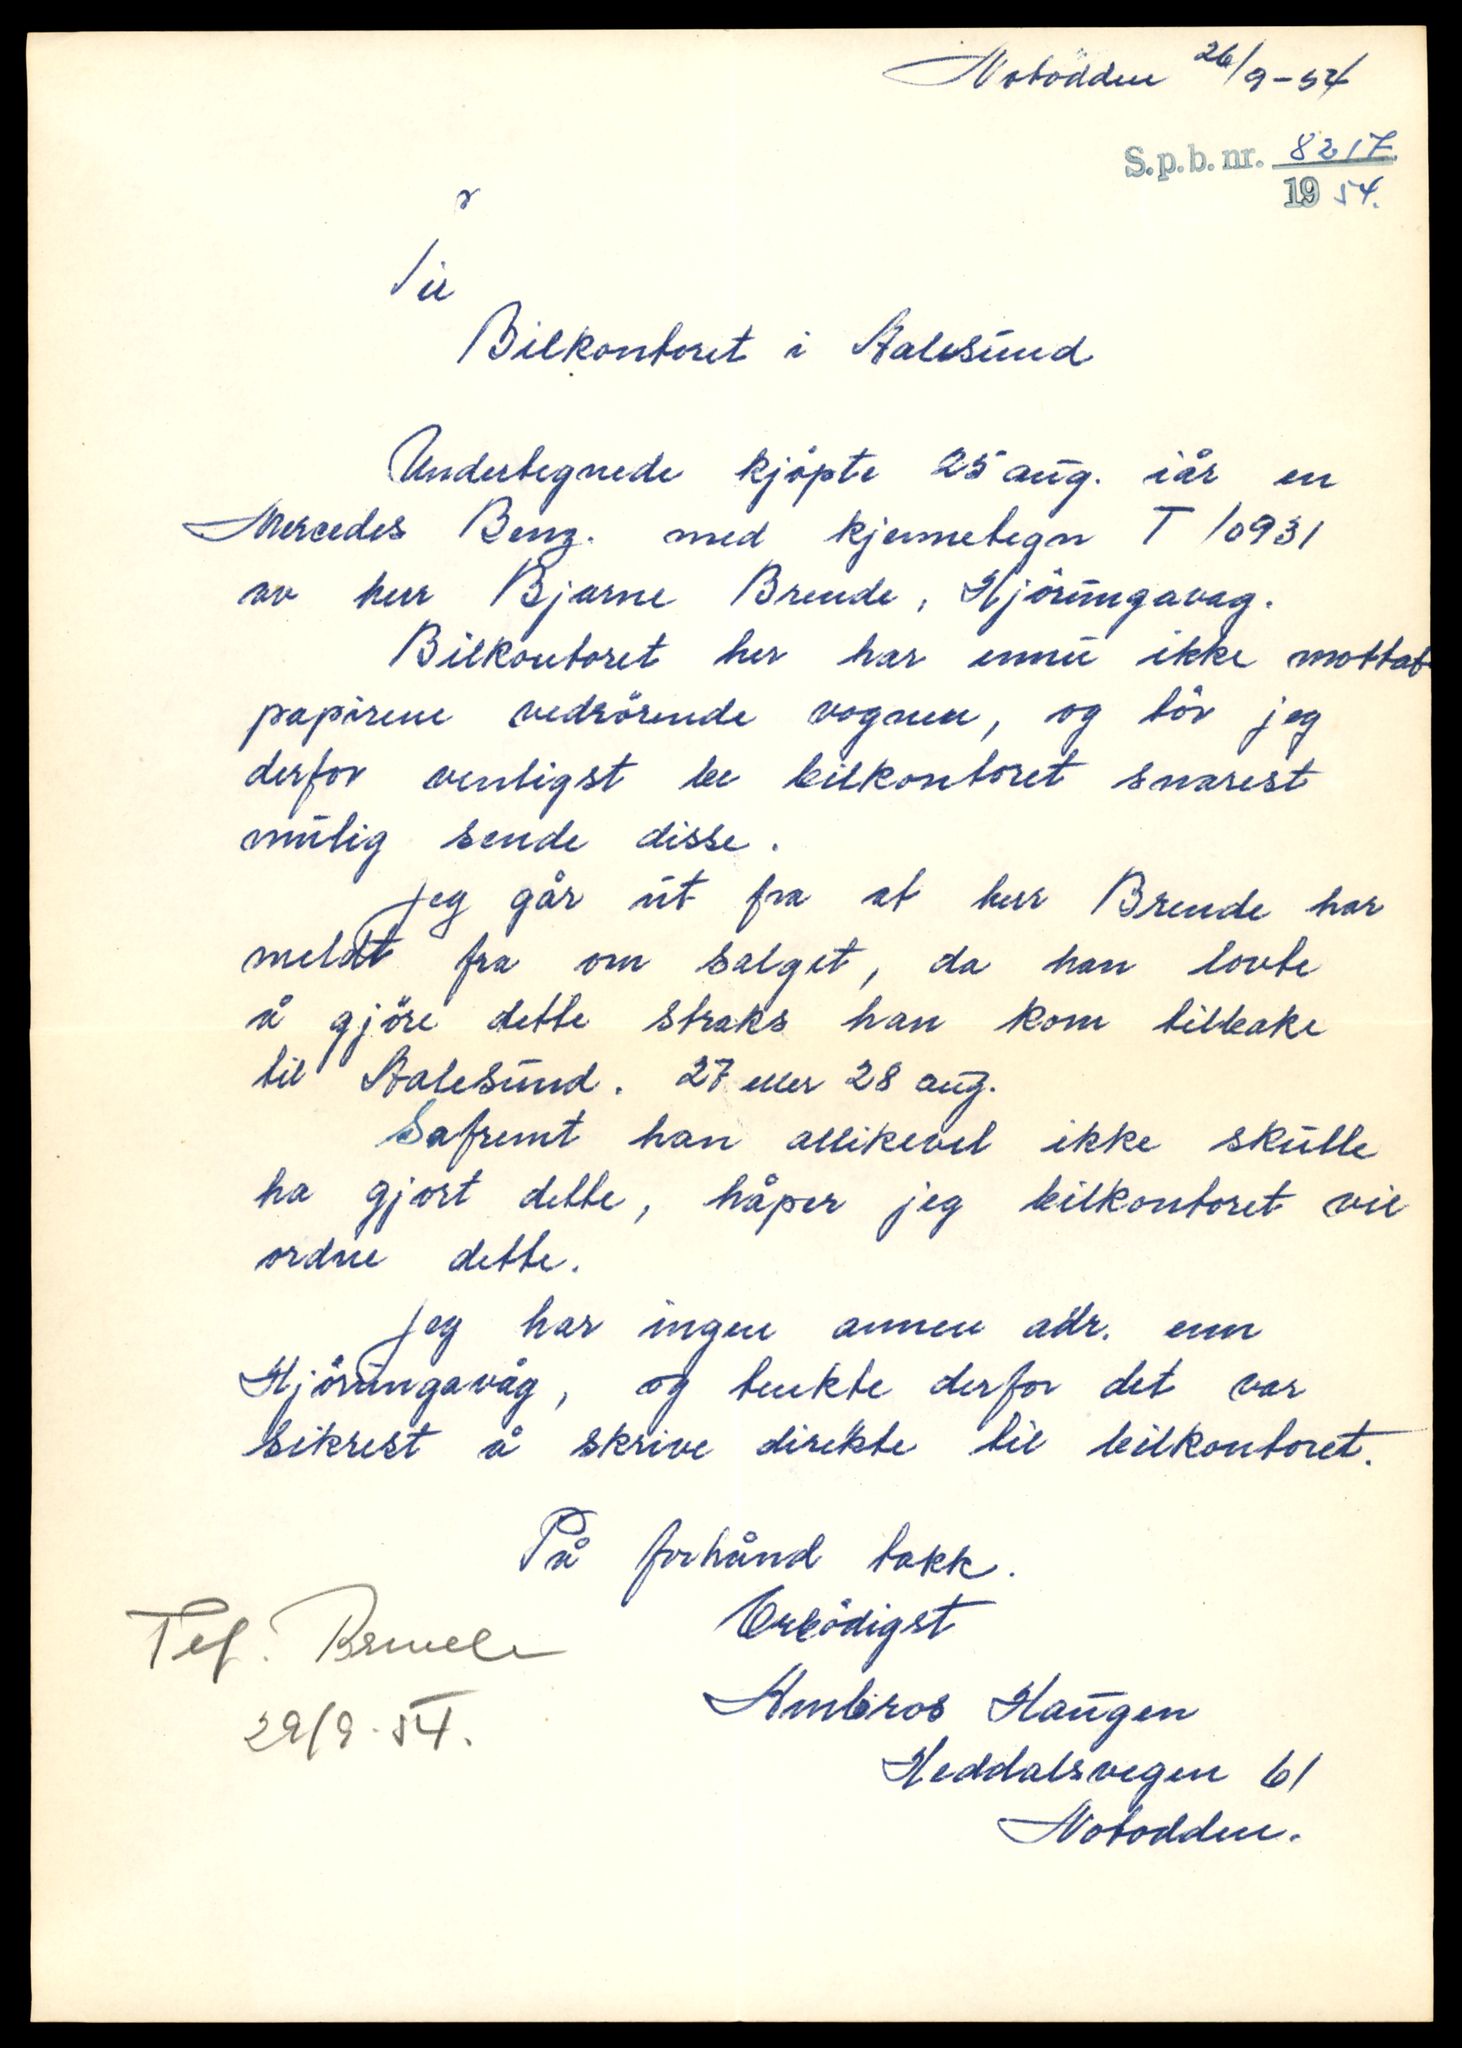 Notodden 26/9-54
S.p.b. nr. 8217
1954.
Til
Bilkontoret i Aalesund
Undertegnede kjöpte 25 aug. iår en
Mercedes Benz. med kjennetegn T 10931
av herr Bjarne Brende, Hjörungavag.
Bilkontoret her har ennu ikke mottatt
papirene vedrörende vognen, og tör jeg
derfor venligst be bilkontoret snarest
mulig sende disse.
Jeg går ut fra at herr Brende har
meldt fra om salget, da han lovte
å gjöre dette straks han kom tilbake
til Aalesund. 27 eller 28 aug.
Safremt han allikevel ikke skulle
ha gjort dette, håper jeg bilkontoret vil
ordne dette.
Jeg har ingen annen adr. enn
Hjörungavåg, og tenkte derfor det var
sikrest å skrive direkte til bilkontoret.
På forhånd takk.
Erbödigst
Ambros Haugen
Heddalsvegen 61
Notodden.
Tlf. Brende
29/9-54.